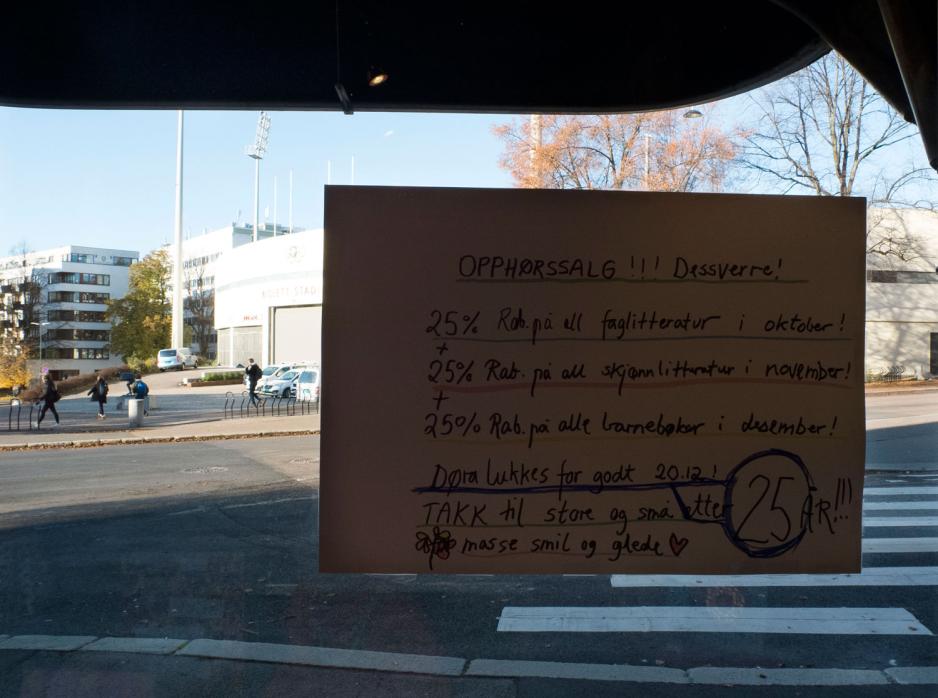 OPPHØRSSALG !!! Dessverre!
25% Rab. på all faglitteratur i oktober!
+
25% Rab. på all skjønnlitteratur i november!
+
25% Rab. på alle barnebøker i desember!
Døra lukkes for godt 20.12!
TAKK til store og små etter 25 ÅR!!!
masse smil og glede